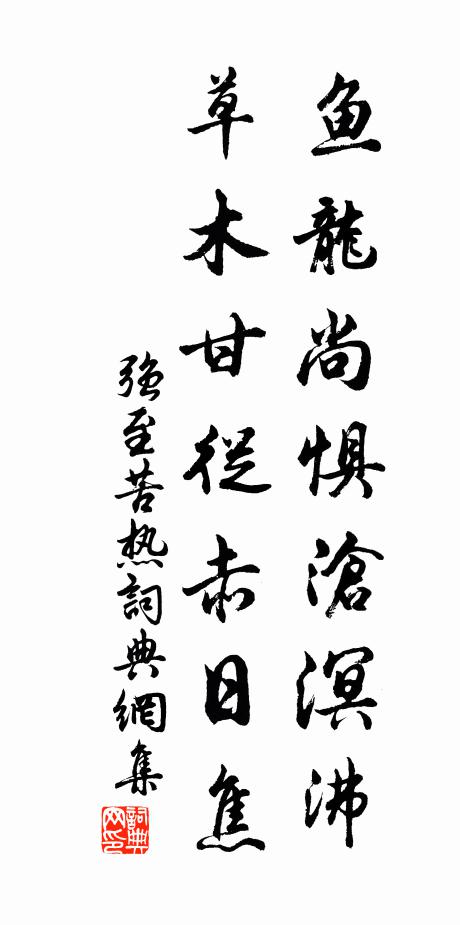 鱼龍尚惧滄溟沸
草木甘從赤日焦
強至苦热詞典網集
詞典网印